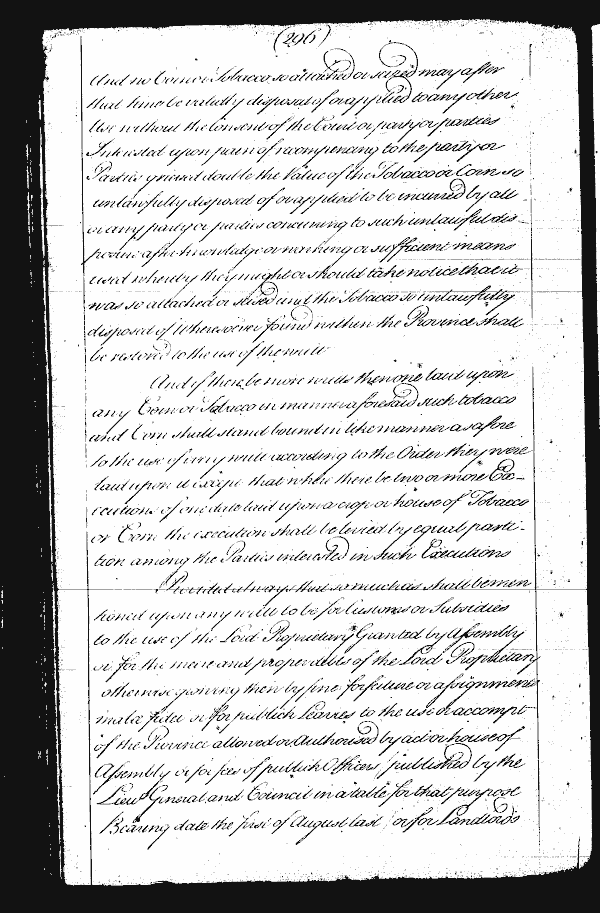 (296)
And no Corn or Tobacco so attached or seized may after
that time be validly disposed of or applied to any other
Use without the Consent of the Court or party or parties
Interested upon pain of recompencing to the party or
Parties grieved double the Value of the Tobacco or Corn so
unlawfully disposed of or applied to be incurred by all
or any party or parties concurring to such unlawful dis-
posure after knowledge or warning or sufficient means
used whereby they might or should take notice that it
was so attached or seized and the Tobacco so unlawfully
disposed of wheresoever found within the Province shall
be restored to the use of the writt
And if there be more writts then one laid upon
any Corn or Tobacco in manner aforesaid such tobacco
and Corn shall stand bound in like manner as afore
to the use of every writt according to the Order they were
laid upon it except that where there be two or more Exe-
cutions of one date laid upon a crop or house of Tobacco
or Corn the execution shall be levied by equal parti-
tion among the Parties interested in such Executions
Provided always that so much as shall be men
tioned upon any writt to be for Customes or Subsidies
to the use of the Lord Proprietary Granted by Assembly
or for the meere and proper debts of the Lord Proprietary
otherwise growing then by fine forfeiture or assignment
mala fide or for publick Leavies to the use or accompt
of the Province allowed or Authorised by act or house of
Assembly or for fees of publick Officers published by the
Lieut General and Council in a table for that purpose
Bearing date the first of August last or for Landlords